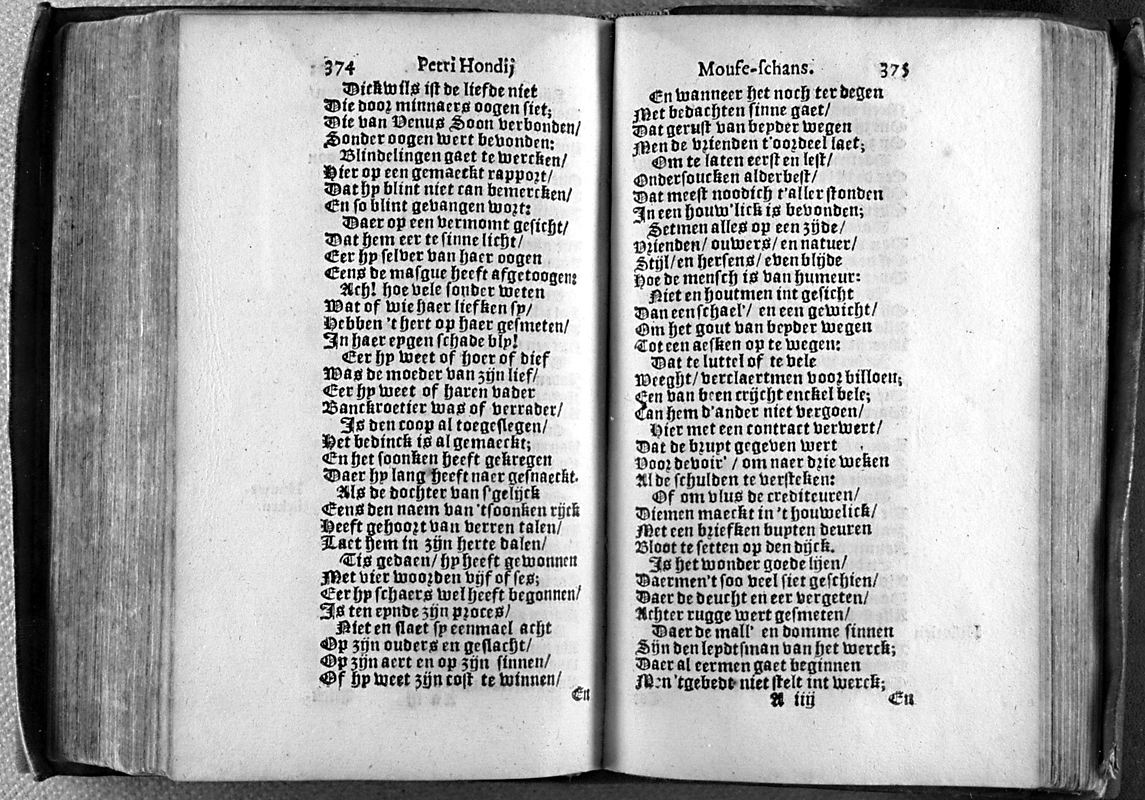 374 Petri Hondij
Dickwils ist de liefde niet
Die door minnaers oogen siet;
Die van Venus Soon verbonden/
Sonder oogen wert bevonden:
Blindelingen gaet te wercken/
Hier op een gemaeckt rapport/
Dat hy blint niet can bemercken/
En so blint gevangen wort:
Daer op een vermomt gesicht/
Dat hem eer te sinne licht/
Eer hy selver van haer oogen
Eens de masque heeft afgetoogen:
Ach! hoe vele sonder weten
Wat of wie haer liefken sy/
Hebben 't hert op haer gesmeten/
In haer eygen schade bly!
Eer hy weet of hoer of dief
Was de moeder van zijn lief/
Eer hy weet of haren vader
Banckroetier was of verrader/
Is den coop al toegeslegen/
Het bedinck is al gemaeckt;
En het soonken heeft gekregen
Daer hy lang heeft naer gesnaeckt.
Als de dochter van s'gelijck
Eens den naem van 'tsoonken rijck
Heeft gehoort van verren talen/
Laet hem in zijn herte dalen/
Tis gedaen/ hy heeft gewonnen
Met vier woorden vijf of ses;
Eer hy schaers wel heeft begonnen/
Is ten eynde zijn proces/
Niet en slaet sy eenmael acht
Op zijn ouders en geslacht/
Op zijn aert en op zijn sinnen/
Of hy weet zijn cost te winnen/
En
Moufe-schans. 375
En wanneer het noch ter degen
Met bedachten sinne gaet/
Dat gerust van beyder wegen
Men de vrienden t'oordeel laet;
Om te laten eerst en lest/
Ondersoucken alderbest/
Dat meest noodich t'aller stonden
In een houw'lick is bevonden;
Setmen alles op een zijde/
Vrienden/ ouwers/ en natuer/
Stijl/ en hersens/ even blijde
Hoe de mensch is van humeur:
Niet en houtmen int gesicht
Dan een schael'/ en een gewicht/
Om het gout van beyder wegen
Tot een aesken op te wegen:
Dat te luttel of te vele
Weeght/ verclaertmen voor billoen;
Een van been crijcht enckel bele;
Can hem d'ander niet vergoen/
Hier met een contract verwert/
Dat de bruyt gegeven wert
Voor devoir'/ om naer drie weken
Al de schulden te versteken:
Of om vlus de crediteuren/
Diemen maeckt in 't houwelick/
Met een briefken buyten deuren
Bloot te setten op den dijck.
Is het wonder goede lijen/
Daermen't soo veel siet geschien/
Daer de deucht en eer vergeten/
Achter rugge wert gesmeten/
Daer de mall' en domme sinnen
Sijn den leydtsman van het werck;
Daer al eermen gaet beginnen
Men 'tgebedt niet stelt int werck;
A iiij En